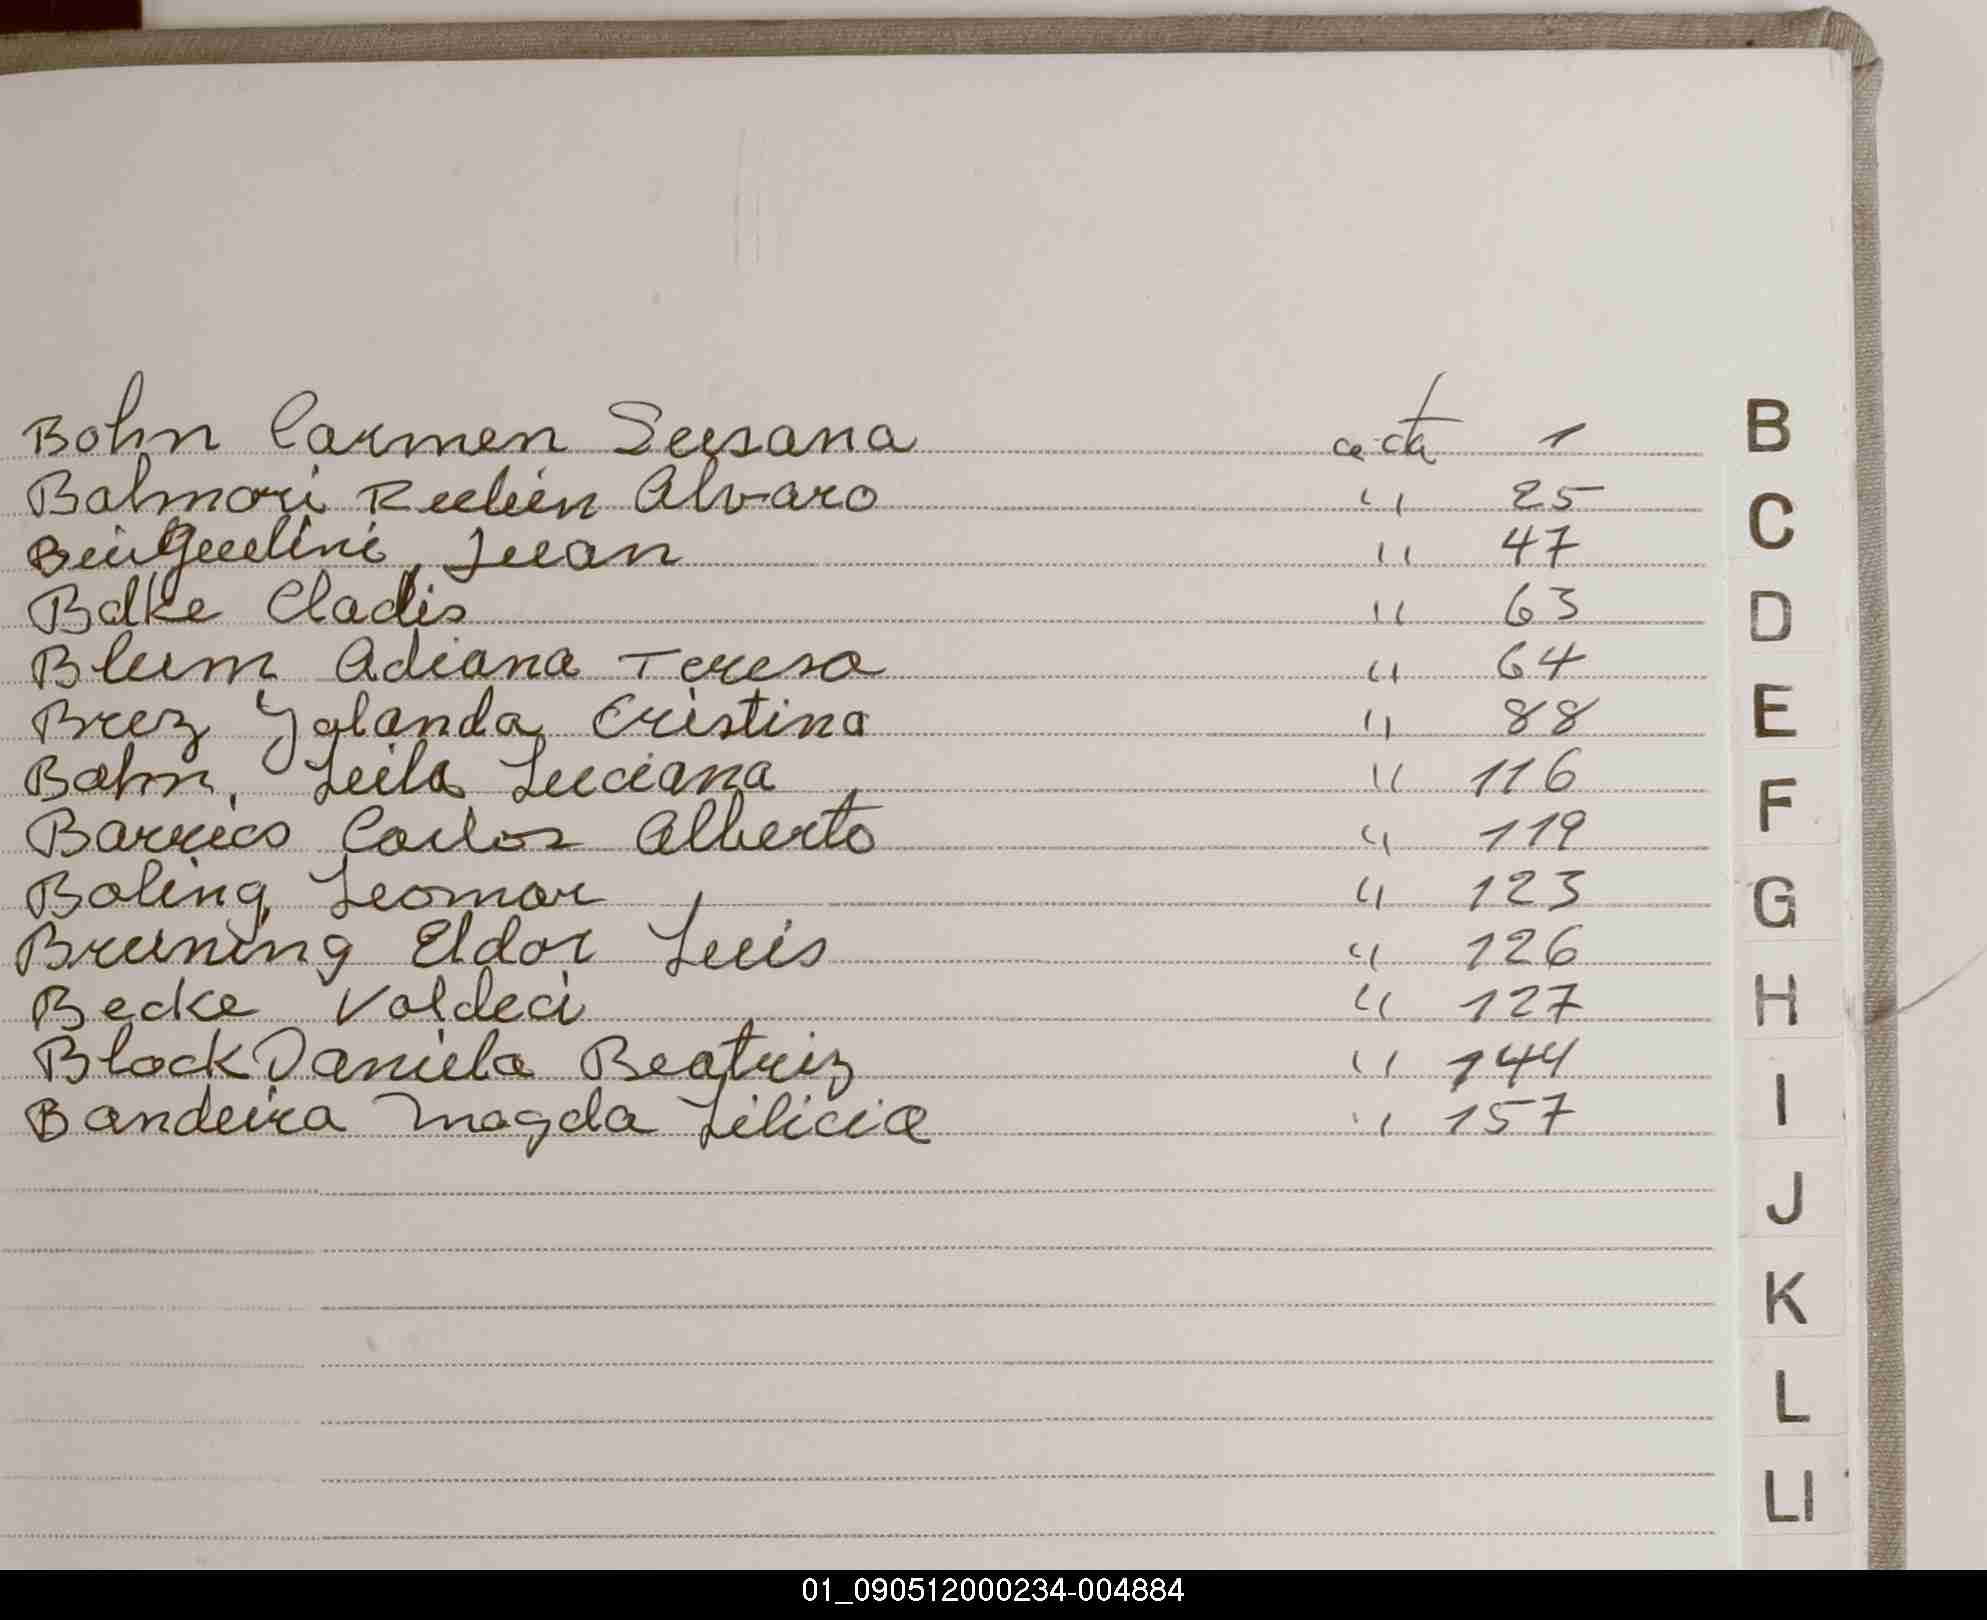 Bohn Carmen Susana acta 1
Balmori Rubén Alvaro " 25
Juan " 47
Bdke Cladis " 63
Blum Adiana Teresa " 64
Brez Yolanda Cristina " 88
Bohn, Leila Luciana " 116
Barrios Carlos Alberto " 119
Boling Leomar " 123
Bruning Eldor Luis " 126
Becke Valdeci " 127
Block Daniela Beatriz " 144
Bandeira Magda Lilicia " 157
B
C
D
E
F
G
H
I
J
K
L
Ll
01_090512000234-004884